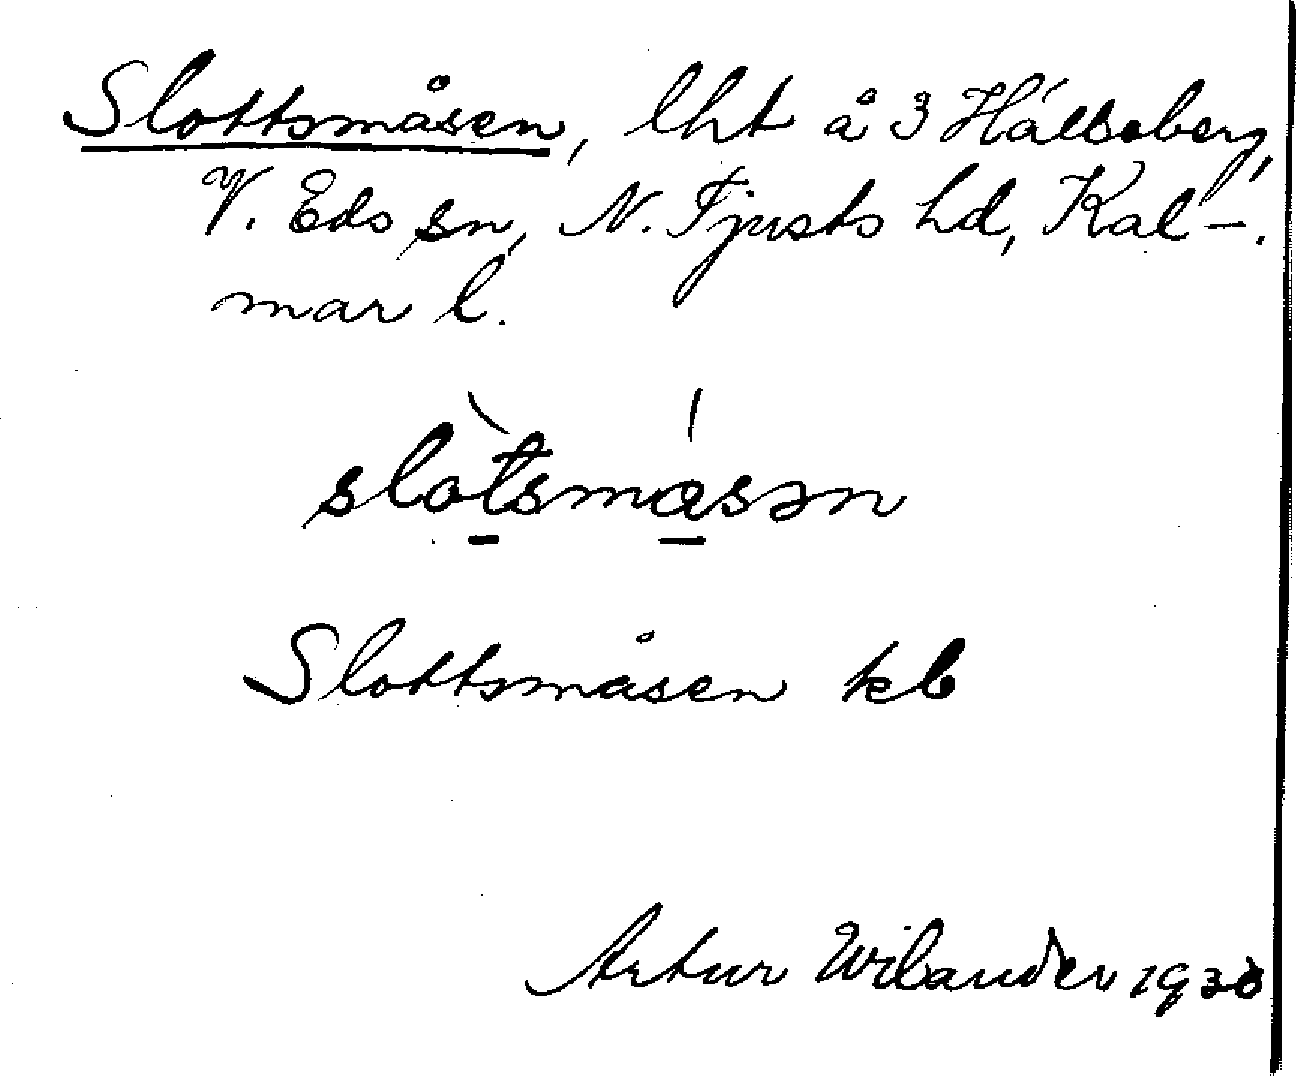 Slottsmåsen, lht å 3 Hälseberg,
V. Eds sn, N. Tjusts hd, Kal-
mar l.
slòtsmásən
Slottsmåsen kb
Artur Wilander 1930